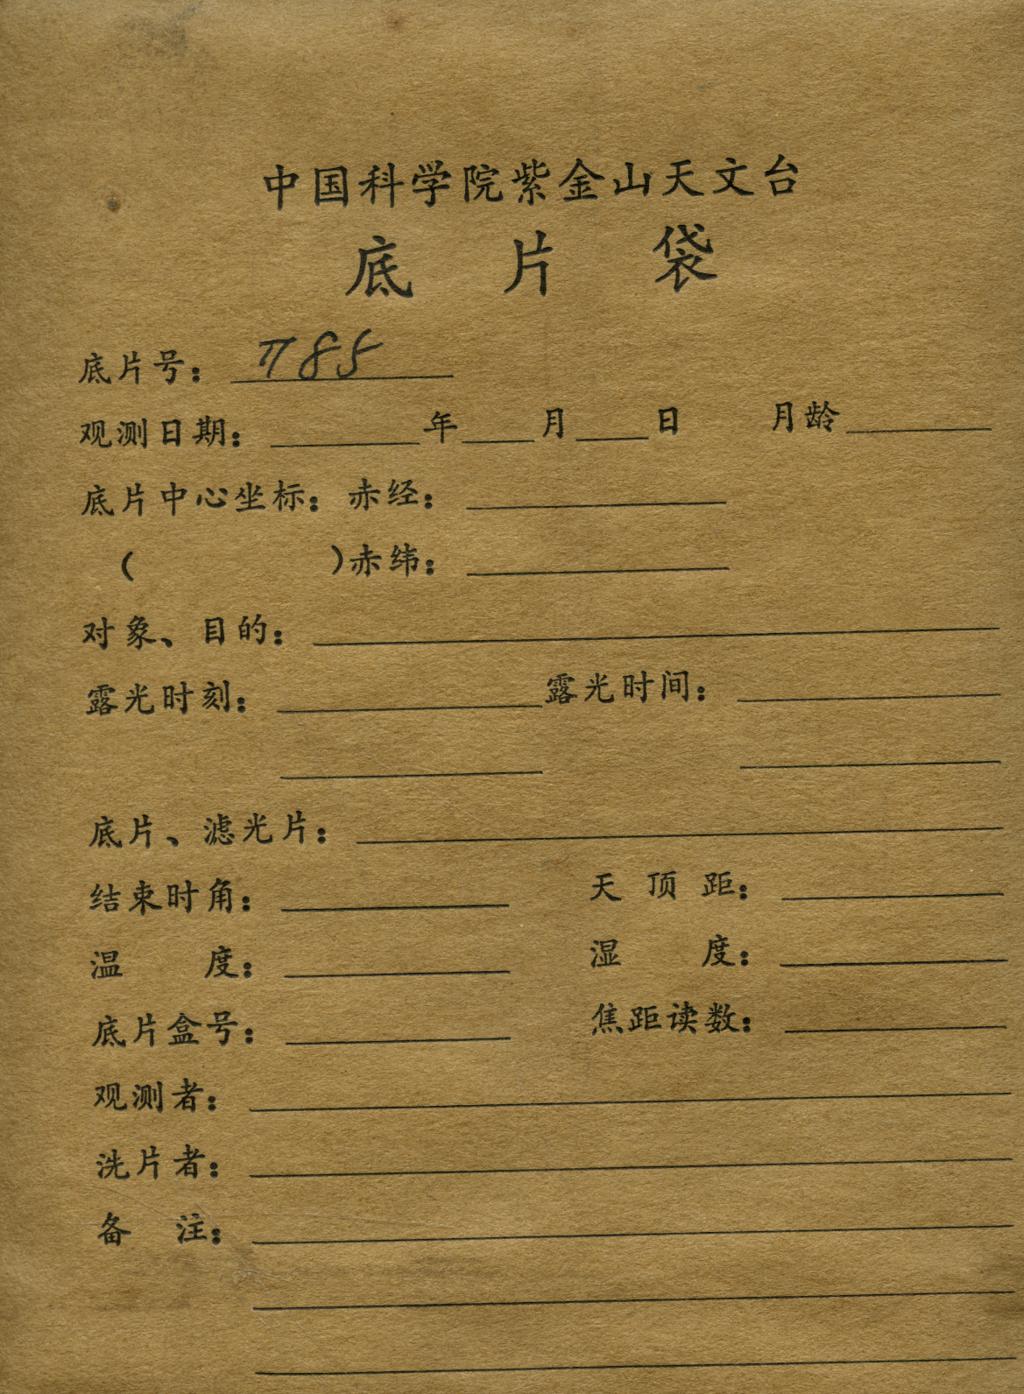 中国科学院紫金山天文台
底片袋
底片号： π85
观测日期： 年 月 日 月龄
底片中心坐标：赤经：
（ ）赤纬：
对象、目的：
露光时刻： 露光时间：
底片、滤光片：
结束时角： 天顶距：
温度： 湿度：
底片盒号： 焦距读数：
观测者：
洗片者：
备注：